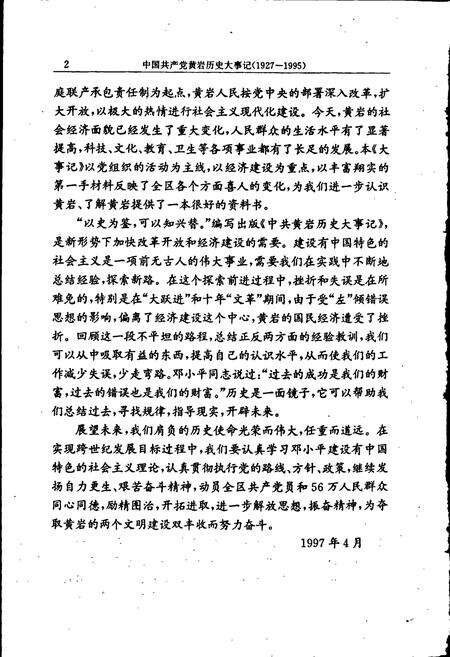 2 中国共产党黄岩历史大事记(1927—1995)
庭联产承包责任制为起点,黄岩人民按党中央的部署深入改革,扩
大开放,以极大的热情进行社会主义现代化建设。今天,黄岩的社
会经济面貌已经发生了重大变化,人民群众的生活水平有了显著
提高,科技、文化、教育、卫生等各项事业都有了长足的发展。本《大
事记》以党组织的活动为主线,以经济建设为重点,以丰富翔实的
第一手材料反映了全区各个方面喜人的变化,为我们进一步认识
黄岩、了解黄岩提供了一本很好的资料书。
“以史为鉴,可以知兴替。”编写出版《中共黄岩历史大事记》,
是新形势下加快改革开放和经济建设的需要。建设有中国特色的
社会主义是一项前无古人的伟大事业,需要我们在实践中不断地
总结经验,探索新路。在这个探索前进过程中,挫折和失误是在所
难免的,特别是在“大跃进”和十年“文革”期间,由于受“左”倾错误
思想的影响,偏离了经济建设这个中心,黄岩的国民经济遭受了挫
折。回顾这一段不平坦的路程,总结正反两方面的经验教训,我们
可以从中吸取有益的东西,提高自己的认识水平,从而使我们的工
作减少失误,少走弯路。邓小平同志说过:“过去的成功是我们的财
富,过去的错误也是我们的财富。”历史是一面镜子,它可以帮助我
们总结过去,寻找规律,指导现实,开辟未来。
展望未来,我们肩负的历史使命光荣而伟大,任重而道远。在
实现跨世纪发展目标过程中,我们要认真学习邓小平建设有中国
特色的社会主义理论,认真贯彻执行党的路线、方针、政策,继续发
扬自力更生、艰苦奋斗精神,动员全区共产党员和56万人民群众
同心同德,励精图治,开拓进取,进一步解放思想,振奋精神,为夺
取黄岩的两个文明建设双丰收而努力奋斗。
1997年4月